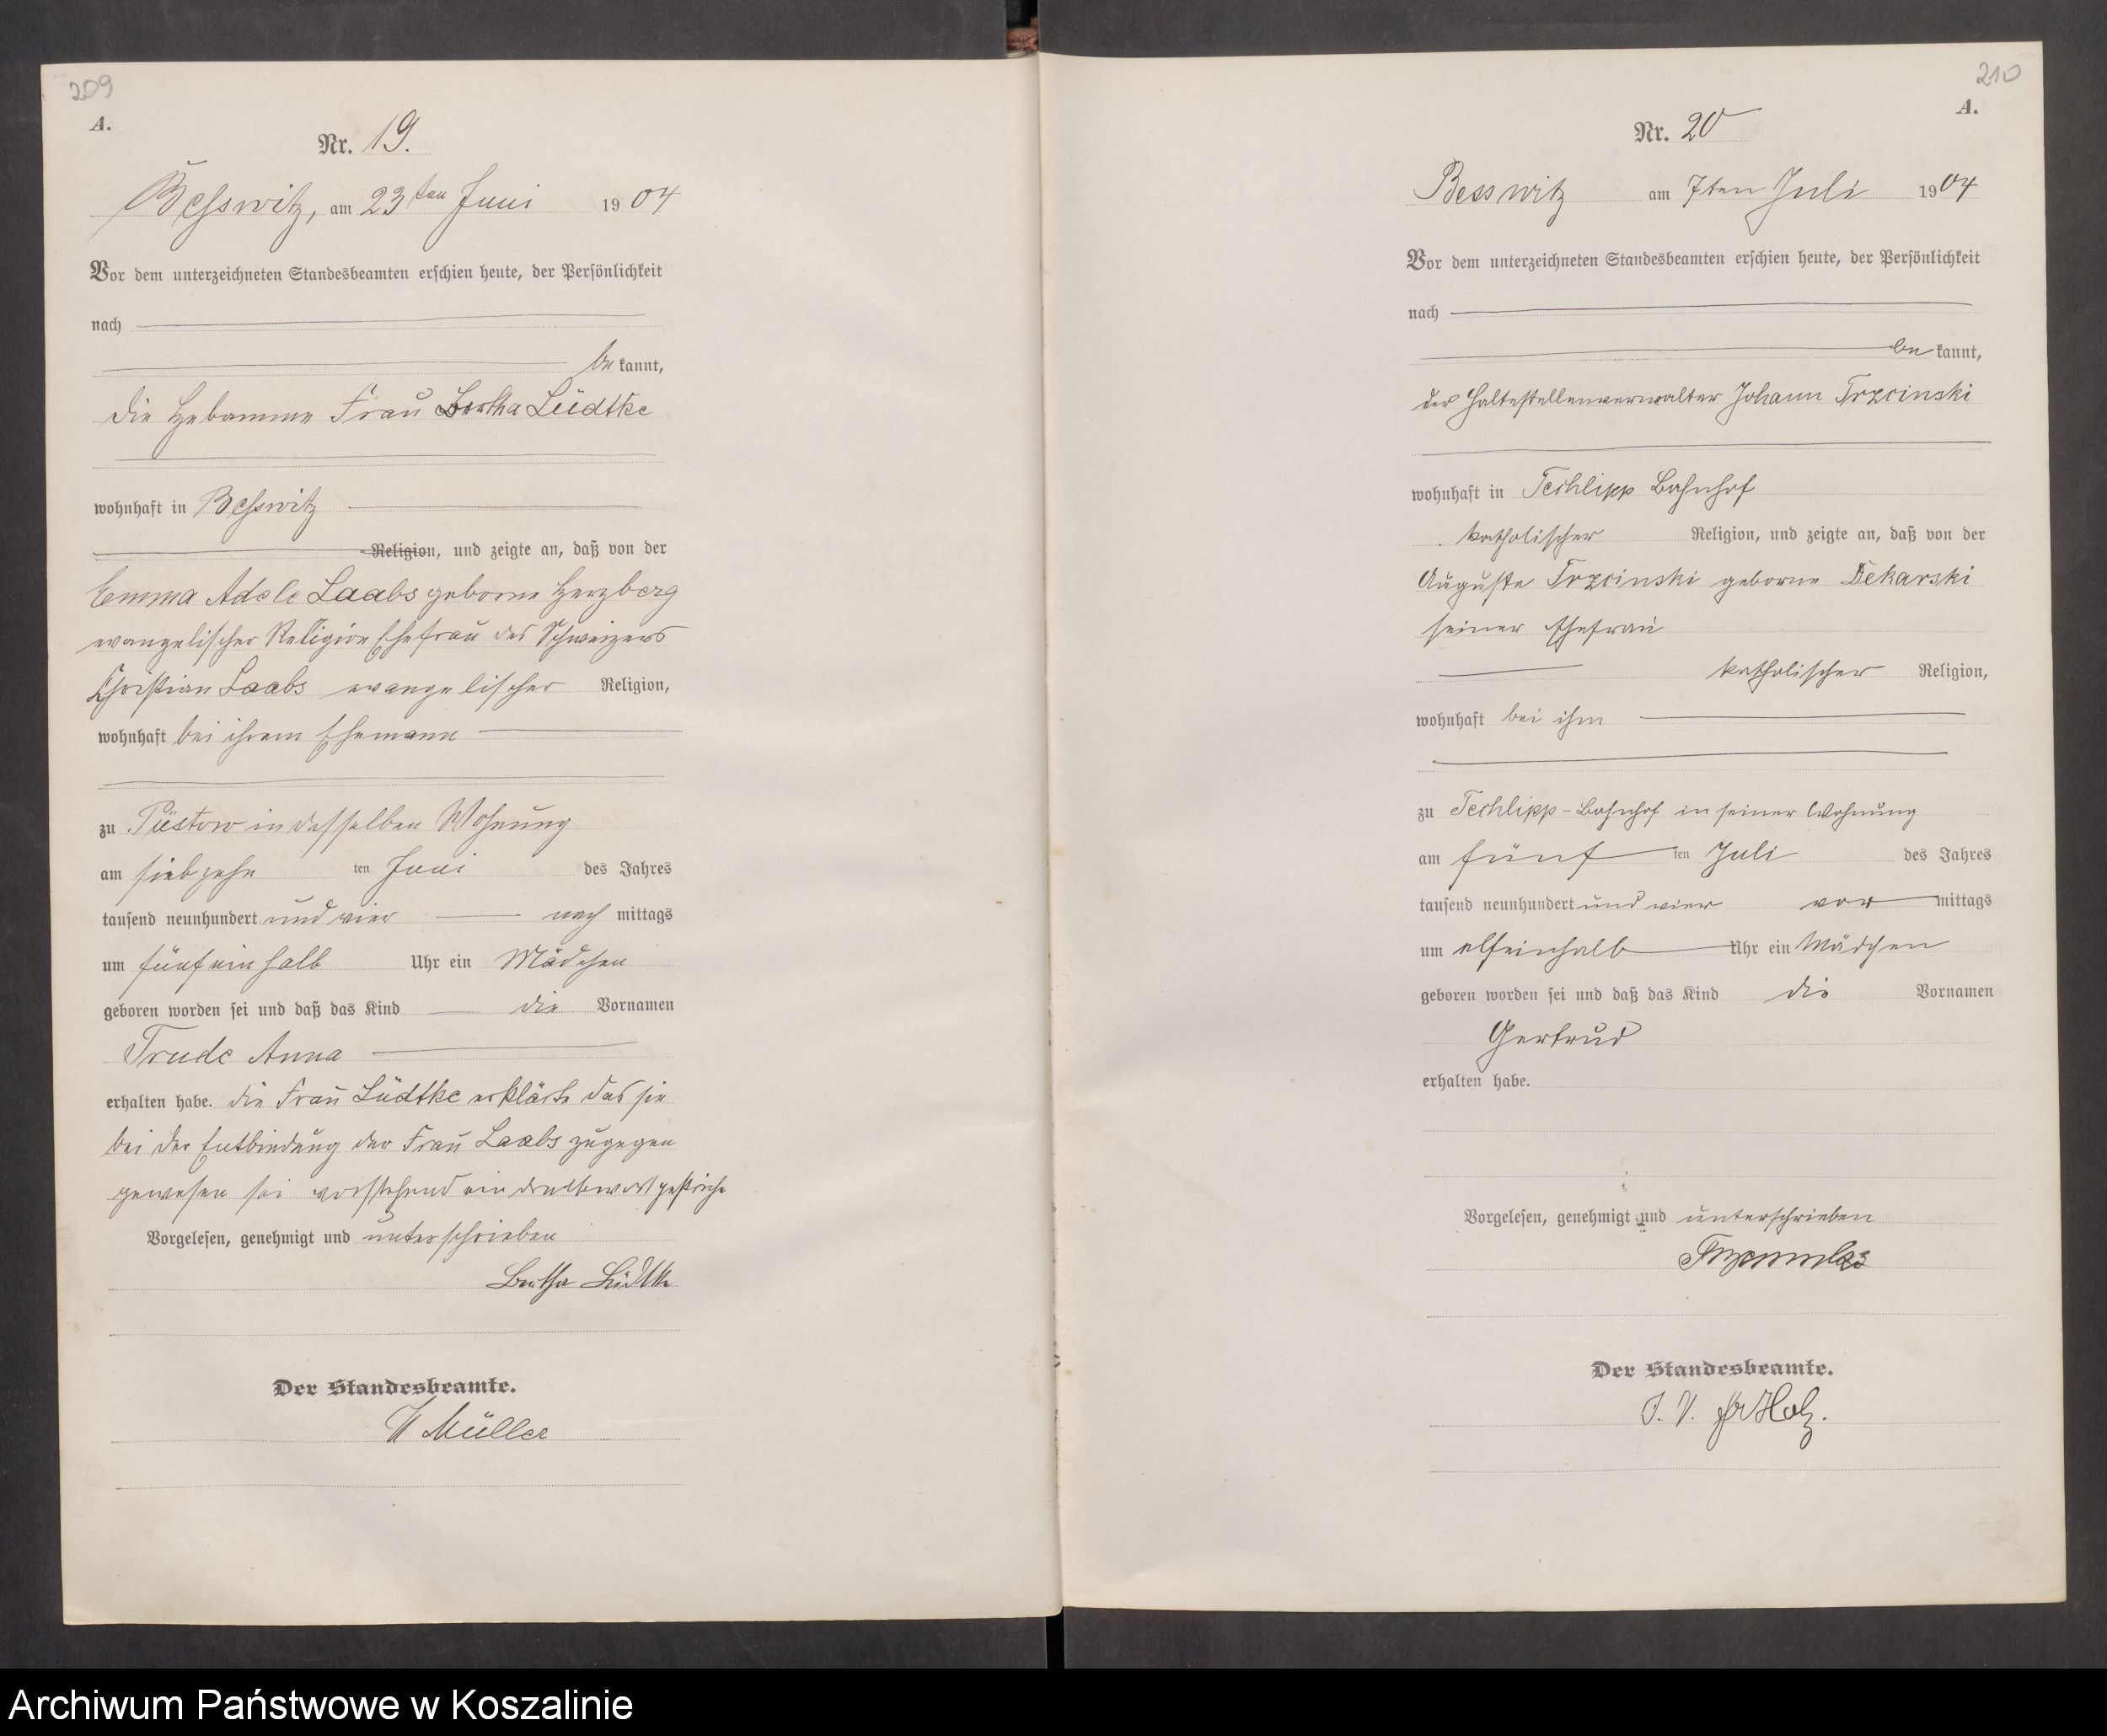 209
A.
Nr. 19.
Beßwitz, am 23ten Juni 1904
Vor dem unterzeichneten Standesbeamten erschien heute, der Persönlichkeit
nach
be kannt,
die Hebamme Frau Bertha Lüdtke
wohnhaft in Beßwitz
Religion, und zeigte an, daß von der
Emma Adele Laabs geborne Herzberg
evangelischer Religion Ehefrau des Schweizers
Christian Laabs evangelischer Religion,
wohnhaft bei ihrem Ehemann
zu Püstow in desselben Wohnung
am siebzehn ten Juni des Jahres
tausend neunhundert und vier nach mittags
um fünfeinhalb Uhr ein Mädchen
geboren worden sei und daß das Kind die Vornamen
Trude Anna
erhalten habe. die Frau Lüdtke erklärte das sie
bei der Entbindung der Frau Laabs zugegen
gewesen sei vorstehend ein druckwort gestriche
Vorgelesen, genehmigt und unterschrieben
Bertha Lüdtke
Der Standesbeamte.
Müller
210
A.
Nr. 20
Besswitz am 7ten Juli 1904
Vor dem unterzeichneten Standesbeamten erschien heute, der Persönlichkeit
nach
be kannt,
der Haltestellenverwalter Johann Trzcinski
wohnhaft in Techlipp Bahnhof
katholischer Religion, und zeigte an, daß von der
Auguste Trzcinski geborne Dekarski
seiner Ehefrau
katholischer Religion,
wohnhaft bei ihm
zu Techlipp-Bahnhof in seiner Wohnung
am fünf ten Juli des Jahres
tausend neunhundert und vier vor mittags
um elfeinhalb Uhr ein Mädchen
geboren worden sei und daß das Kind die Vornamen
Gertrud
erhalten habe.
Vorgelesen, genehmigt und unterschrieben
Trzcinski
Der Standesbeamte.
I. V. Holz.
Archiwum Państwowe w Koszalinie